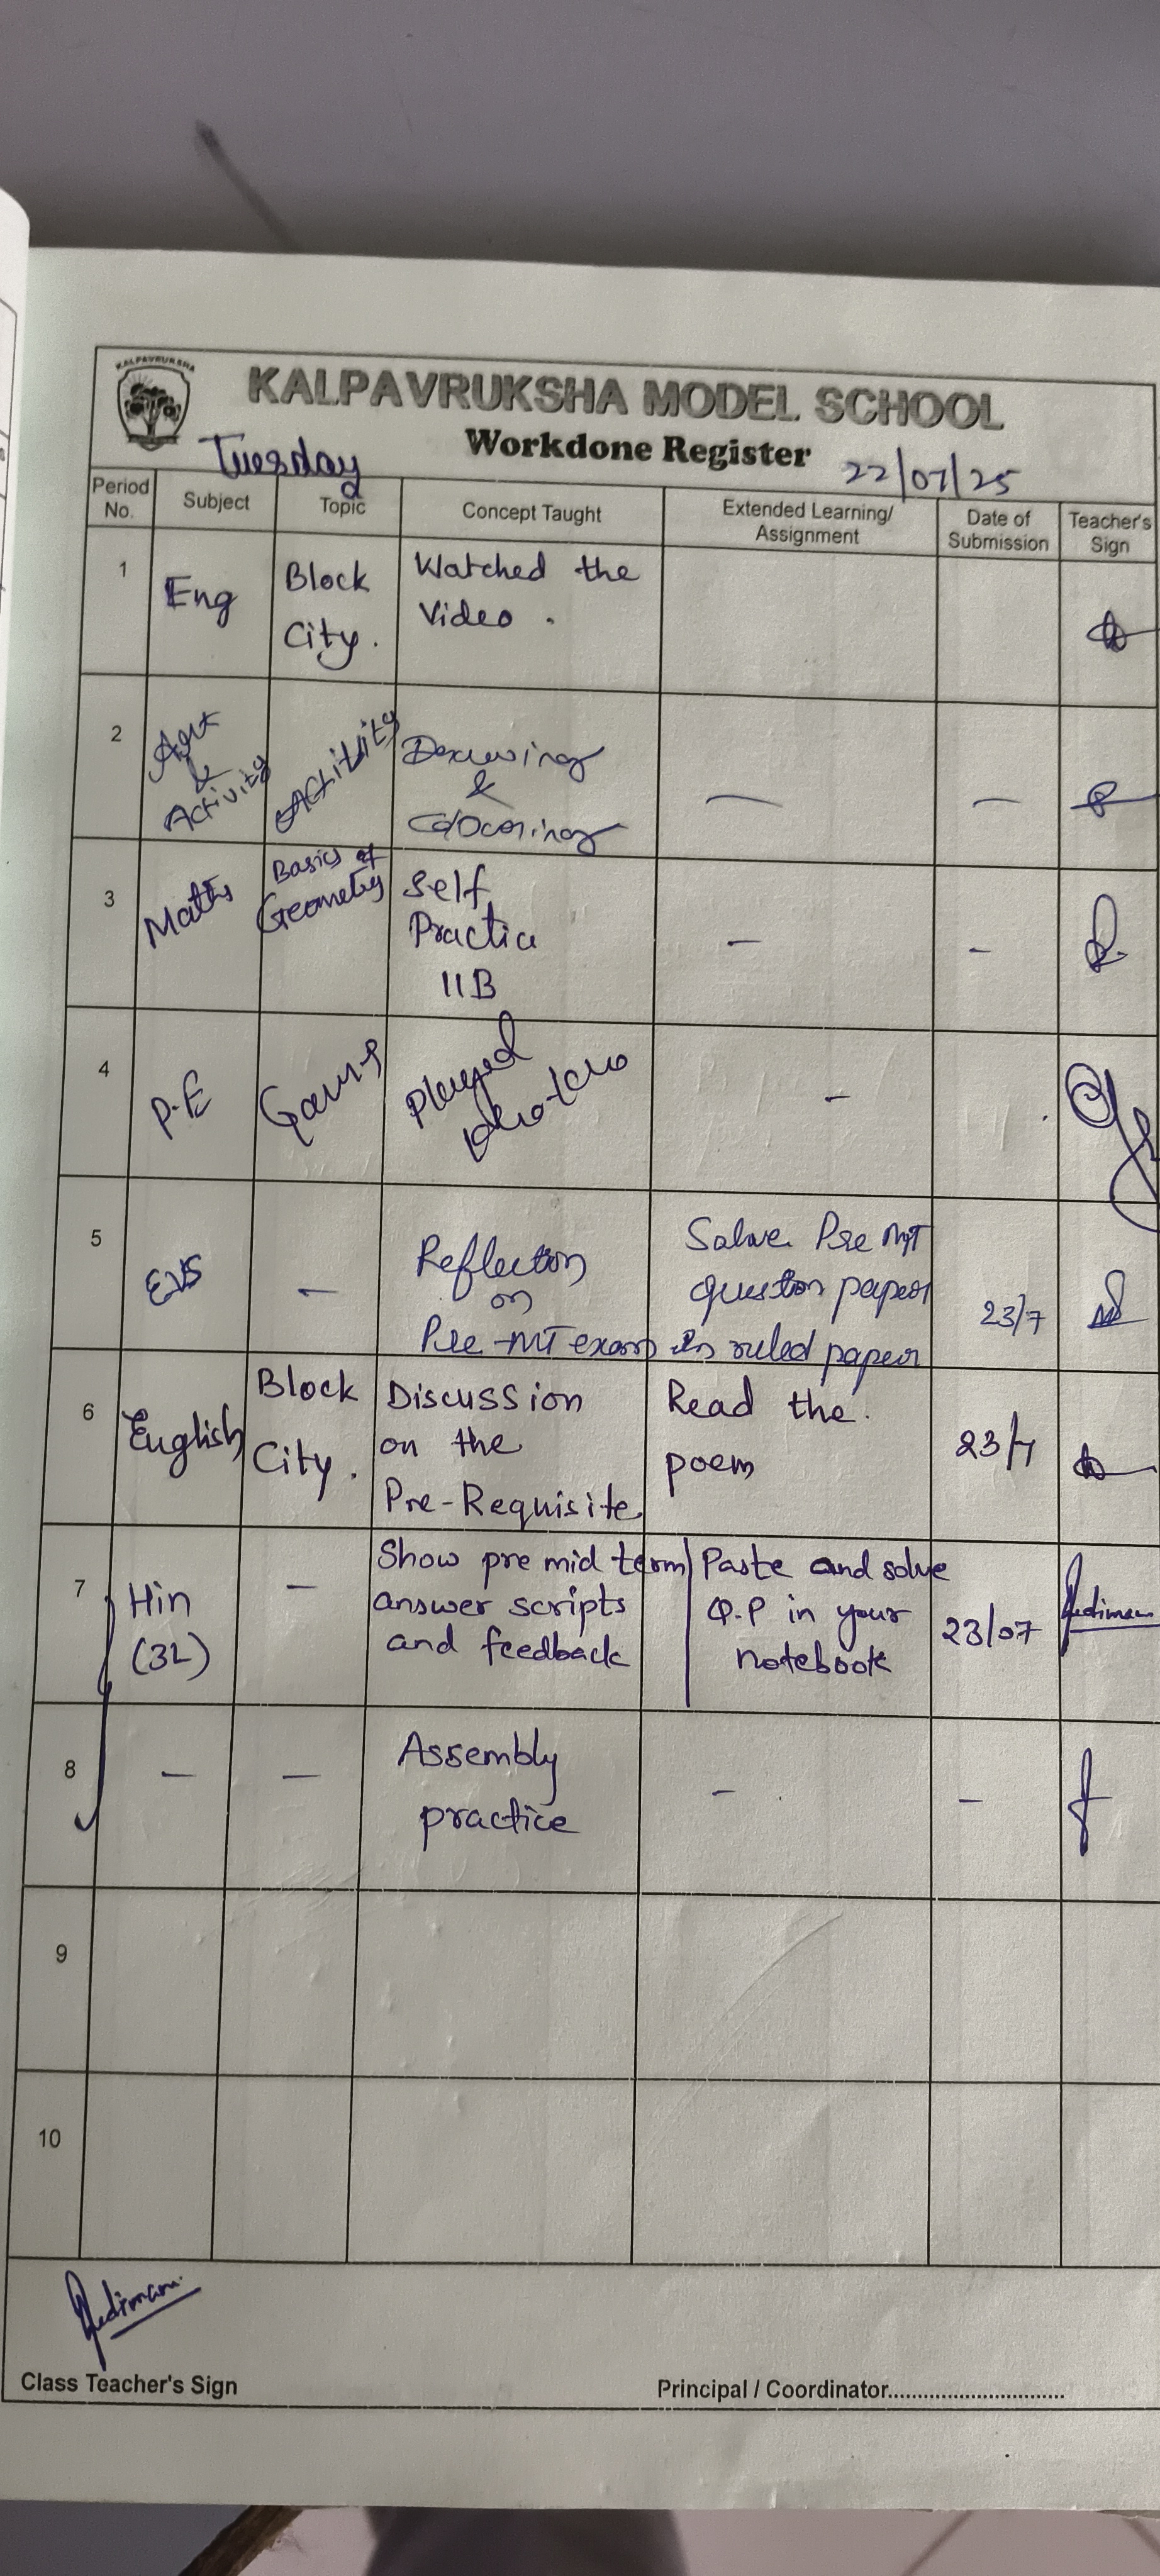 KALPAVRUKSHA
KALPAVRUKSHA MODEL SCHOOL
Workdone Register
Tuesday
22/07/25
Period No. Subject Topic Concept Taught Extended Learning/ Assignment Date of Submission Teacher's Sign
1 Eng Block City. Watched the Video.
2 Art & Activity Activity Drawing & Colouring — —
3 Maths Basics of Geometry Self Practice 11B - -
4 P.E Games Played kho-kho -
5 EVS — Reflection on Pre-MT exam Solve Pre MT question paper in ruled paper 23/7
6 English Block City. Discussion on the Pre-Requisite Read the poem 23/7
7 Hin (3L) - Show pre mid term answer scripts and feedback Paste and solve Q.P in your notebook 23/07
8 — — Assembly practice - -
9
10
Class Teacher's Sign
Principal / Coordinator..............................